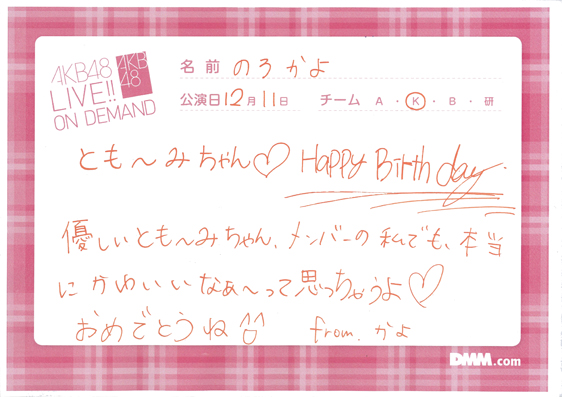 AKB48
LIVE!!
ON DEMAND
AKB
48
名前 のろかよ
公演日 12月11日 チーム A・K・B・研
とも〜みちゃん♡ Happy Birthday.
優しいとも〜みちゃん、メンバーの私でも、本当
にかわいいなぁ〜って思っちゃうよ♡
おめでとうね^^ from.かよ
DMM.com